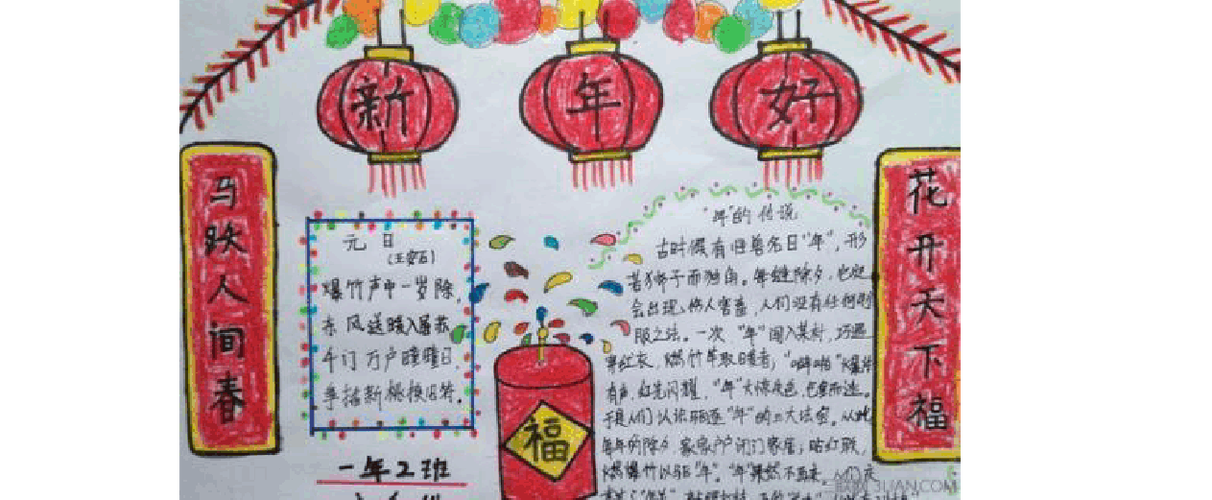 新年好
马跃人间春
花开天下福
元日
(王安石)
爆竹声中一岁除,
东风送暖入屠苏
千门万户曈曈日,
手括新桃换旧符。
福
一年2班
"年"的传说
古时候有旧兽名曰"年",形
若狮子而独角。每继除夕,它
会出现,伤人害畜,人们没有任何
服之法。一次"年"闯入某村,巧遇
穿红衣,燃竹竿取暖者;"噼啪"爆
有声,红光闪耀,"年"大惊失色,
于是人们认识驱逐"年"的三大法宝,从此
每年的除夕,家家户户闭门家居;贴红联,
燃爆竹以驱"年","年"果然不再来,人们
3LIAN.COM